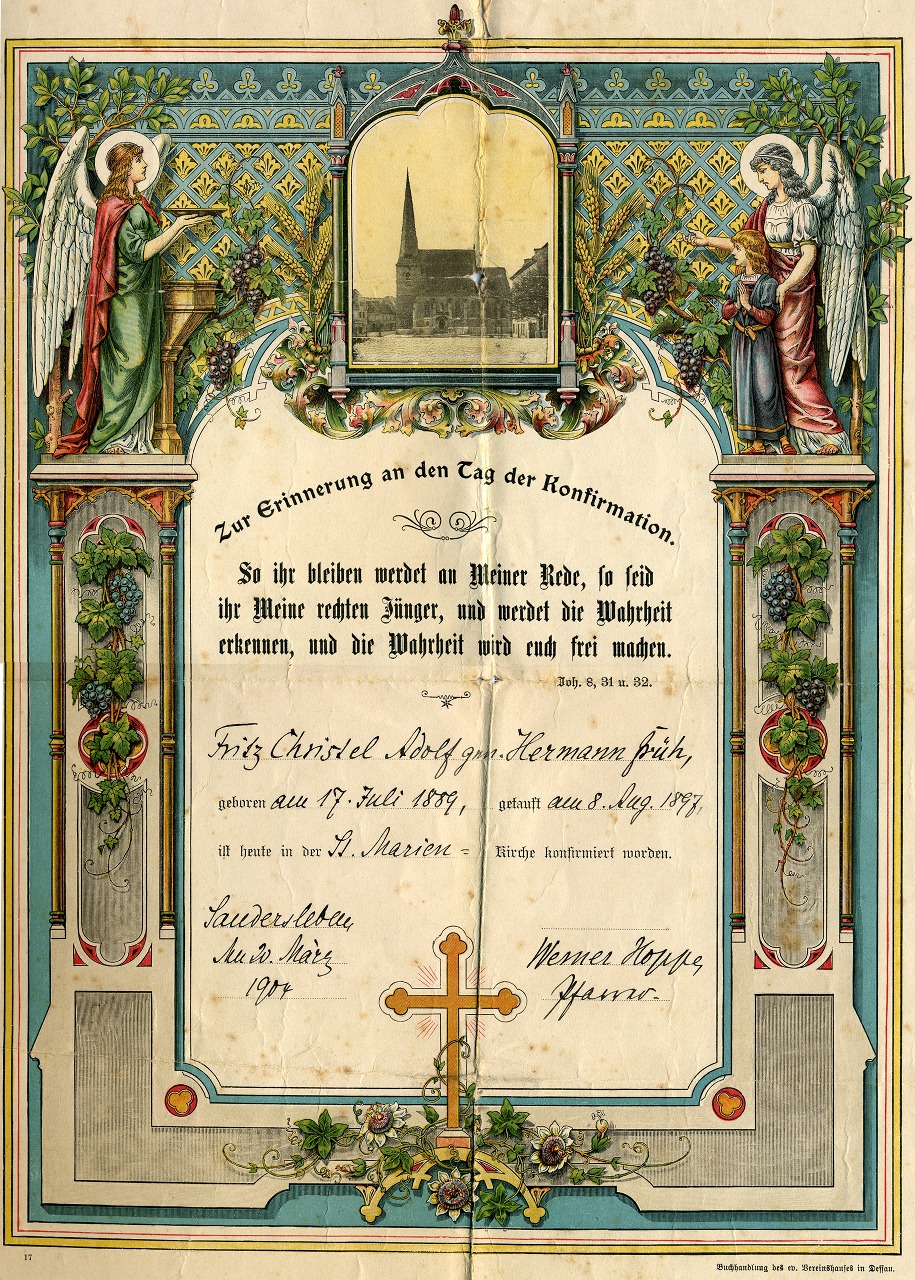 Zur Erinnerung an den Tag der Konfirmation.
So ihr bleiben werdet an Meiner Rede, so seid
ihr Meine rechten Jünger, und werdet die Wahrheit
erkennen, und die Wahrheit wird euch frei machen.
Joh. 8, 31 u. 32.
Fritz Christel Adolf gen. Hermann Früh,
geboren am 17. Juli 1889, getauft am 8. Aug. 1897,
ist heute in der St. Marien = Kirche konfirmiert worden.
Sandersleben
Am 20. März
1904
Werner Hoppe,
Pfarrer.
17
Buchhandlung des ev. Vereinshauses in Dessau.